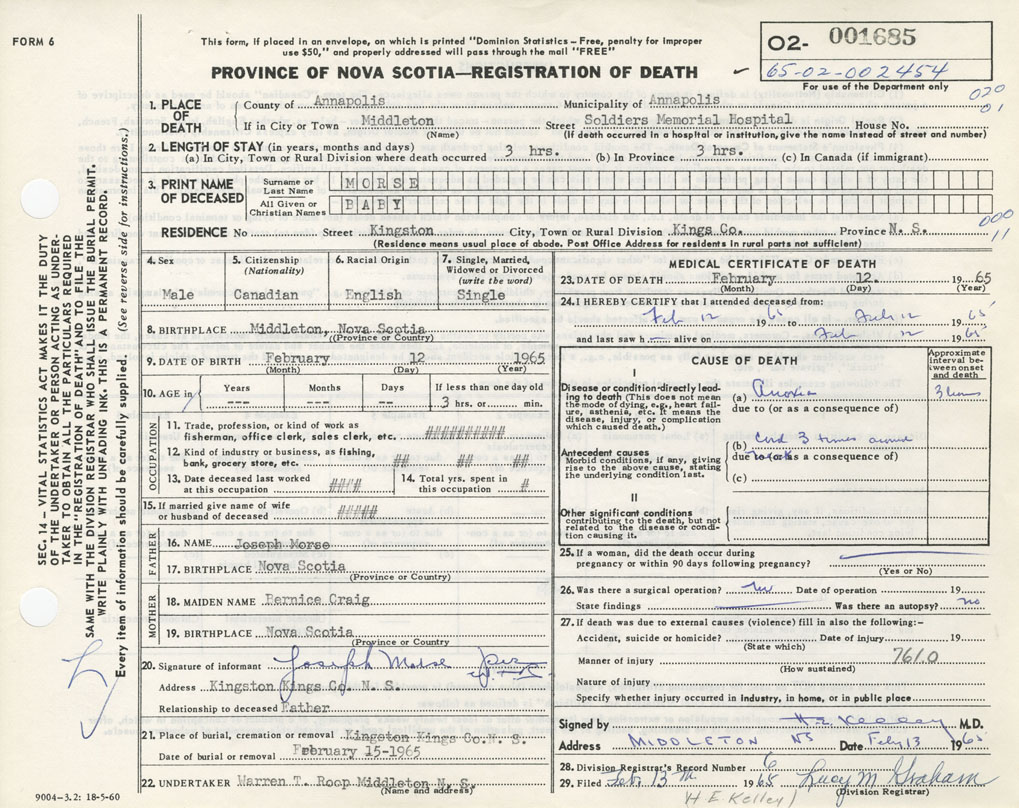 FORM 6
This form, if placed in an envelope, on which is printed "Dominion Statistics - Free, penalty for improper
use $50," and properly addressed will pass through the mail "FREE"
PROVINCE OF NOVA SCOTIA—REGISTRATION OF DEATH
O2- 001685
65-02-002454
For use of the Department only
020
01
1. PLACE OF DEATH
County of Annapolis Municipality of Annapolis
If in City or Town Middleton Street Soldiers Memorial Hospital House No.
(Name) (If death occurred in a hospital or institution, give the name instead of street and number)
2. LENGTH OF STAY (in years, months and days)
(a) In City, Town or Rural Division where death occurred 3 hrs. (b) In Province 3 hrs. (c) In Canada (if immigrant)
3. PRINT NAME OF DECEASED
Surname or Last Name MORSE
All Given or Christian Names BABY
000
11
RESIDENCE No Street Kingston City, Town or Rural Division Kings Co. Province N. S.
(Residence means usual place of abode. Post Office Address for residents in rural parts not sufficient)
4. Sex Male
5. Citizenship (Nationality) Canadian
6. Racial Origin English
7. Single, Married, Widowed or Divorced (write the word) Single
8. BIRTHPLACE Middleton, Nova Scotia
((Province or Country)
9. DATE OF BIRTH February 12 1965
(Month) (Day) (Year)
10. AGE in Years --- Months --- Days -- If less than one day old 3 hrs. or min.
OCCUPATION
11. Trade, profession, or kind of work as
fisherman, office clerk, sales clerk, etc. ##########
12. Kind of industry or business, as fishing,
bank, grocery store, etc. ## ## ##
13. Date deceased last worked
at this occupation ####
14. Total yrs. spent in
this occupation #
15. If married give name of wife
or husband of deceased #####
FATHER
16. NAME Joseph Morse
17. BIRTHPLACE Nova Scotia
(Province or Country)
MOTHER
18. MAIDEN NAME Bernice Craig
19. BIRTHPLACE Nova Scotia
(Province or Country)
20. Signature of informant Joseph Morse
Address Kingston Kings Co. N. S.
Relationship to deceased Father
21. Place of burial, cremation or removal Kingston Kings Co.N. S.
Date of burial or removal February 15-1965
22. UNDERTAKER Warren T. Roop Middleton N. S.
(Name and address)
9004-3.2: 18-5-60
SEC. 14 – VITAL STATISTICS ACT MAKES IT THE DUTY
OF THE UNDERTAKER OR PERSON ACTING AS UNDER-
TAKER TO OBTAIN ALL THE PARTICULARS REQUIRED
IN THE "REGISTRATION OF DEATH" AND TO FILE THE
SAME WITH THE DIVISION REGISTRAR WHO SHALL ISSUE THE BURIAL PERMIT.
WRITE PLAINLY WITH UNFADING INK. THIS IS A PERMANENT RECORD.
Every item of information should be carefully supplied. (See reverse side for instructions.)
MEDICAL CERTIFICATE OF DEATH
23. DATE OF DEATH February 12. 1965
(Month) (Day) (Year)
24. I HEREBY CERTIFY that I attended deceased from:
Feb 12 1965 to Feb 12 1965
and last saw h alive on Feb 12 1965
CAUSE OF DEATH
Approximate interval between onset and death
I
Disease or condition directly lead-
ing to death (This does not mean
the mode of dying, e.g., heart failure,
asthenia, etc. It means the
disease, injury, or complication
which caused death.)
(a) Anoxia 3 hours
due to (or as a consequence of)
Antecedent causes
Morbid conditions, if any, giving
rise to the above cause, stating
the underlying condition last.
(b) Cord 3 times around
neck
due to (or as a consequence of)
(c)
II
Other significant conditions
contributing to the death, but not
related to the disease or condi-
tion causing it.
25. If a woman, did the death occur during
pregnancy or within 90 days following pregnancy?
(Yes or No)
26. Was there a surgical operation? no Date of operation 19
State findings Was there an autopsy? no
27. If death was due to external causes (violence) fill in also the following:-
Accident, suicide or homicide? Date of injury 19
(State which)
Manner of injury 761.0
(How sustained)
Nature of injury
Specify whether injury occurred in industry, in home, or in public place
Signed by H.E. Kelley M.D.
Address MIDDLETON NS Date Feb 13 1965
28. Division Registrar's Record Number 6
29. Filed Feb. 13th 1965 Lucy M Graham
(Division Registrar)
H E. Kelley)